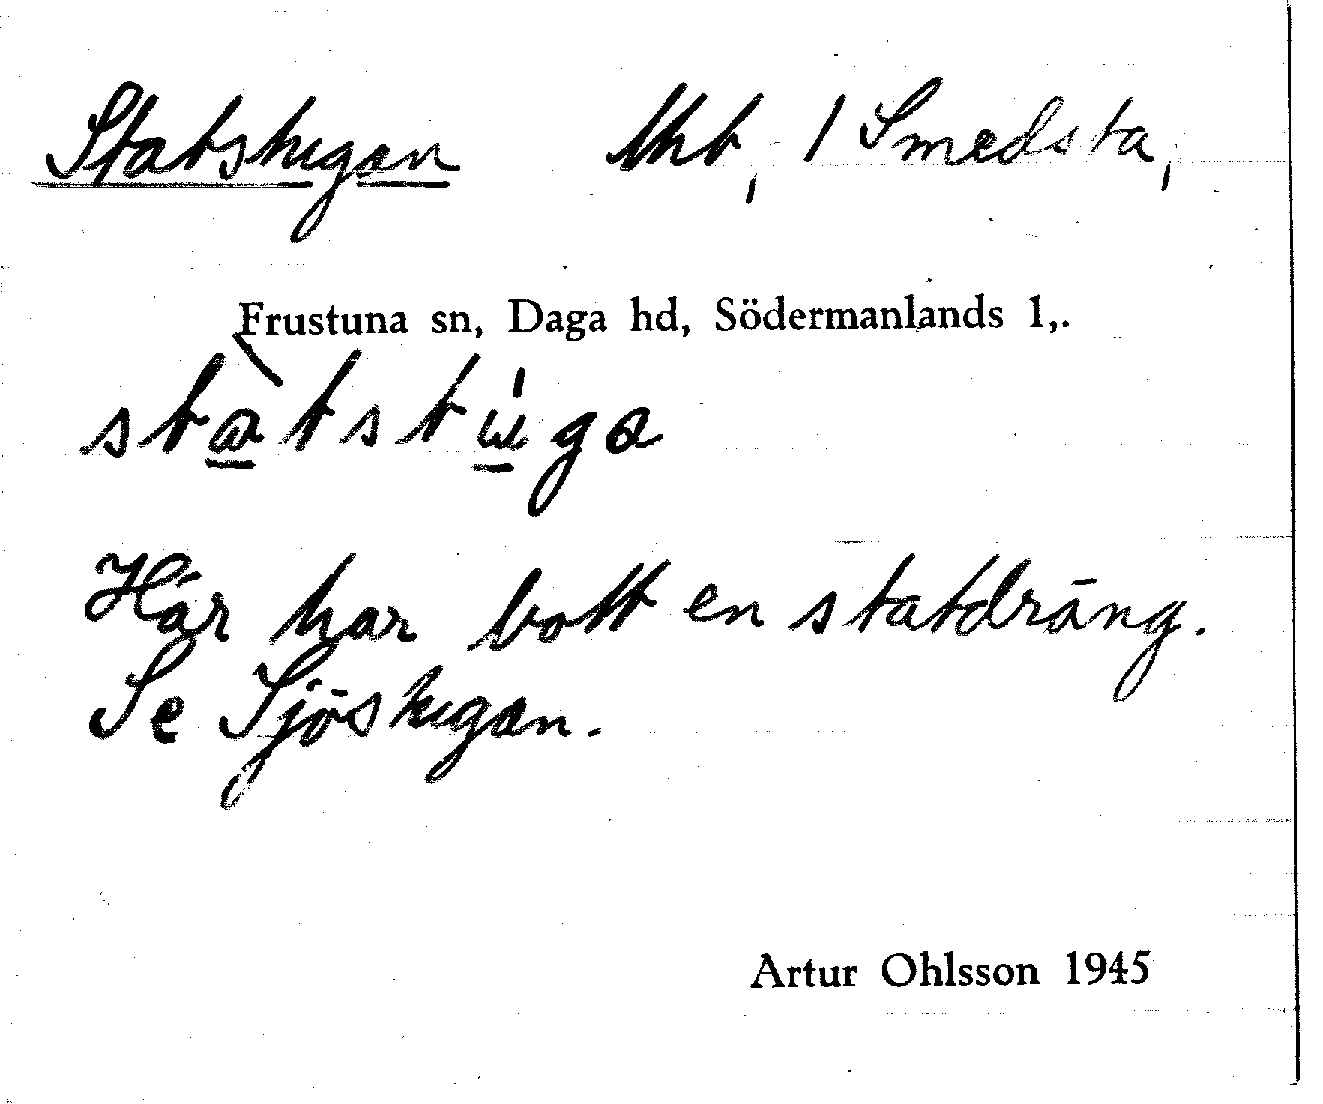 Statstugan tkt, / Smedsta,
Frustuna sn, Daga hd, Södermanlands l,.
Här har bott en statdräng.
Se Sjöstugan.
Artur Ohlsson 1945